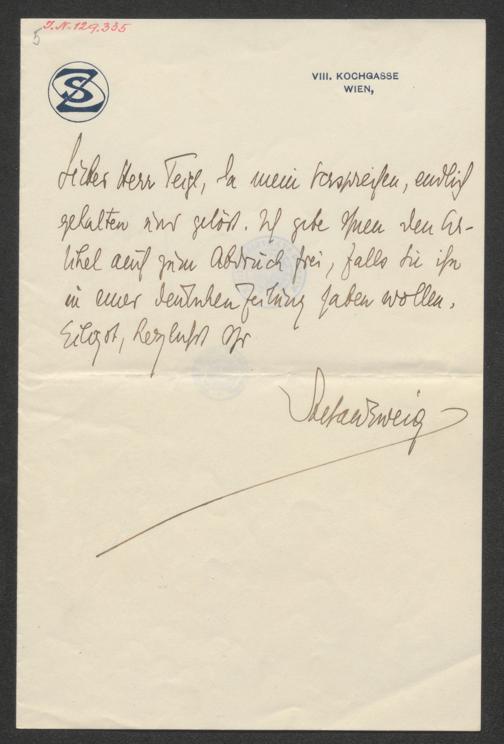 5
I.N. 129.335
SZ
VIII. KOCHGASSE
WIEN,
Lieber Herr Teige, da mein Versprechen, endlich
gehalten und gelöst. Ich gebe Ihnen den Ar-
tikel auch zum Abdruck frei, falls Sie ihn
in einer deutschen Zeitung haben wollen.
Eiligst, herzlichst Ihr
Stefan Zweig